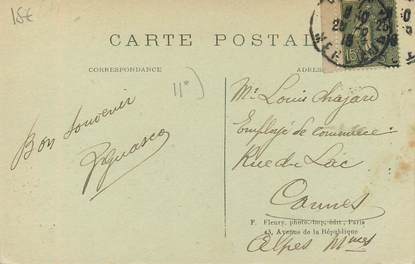 15€
CARTE POSTALE
CORRESPONDANCE
ADRESSE
11°)
Bon Souvenir
Mr Louis Chajard
Employé de commerce
Rue du Lac
Cannes
F. Fleury, phot.-imp., édit., Paris
43, Avenue de la République
Alpes Mmes